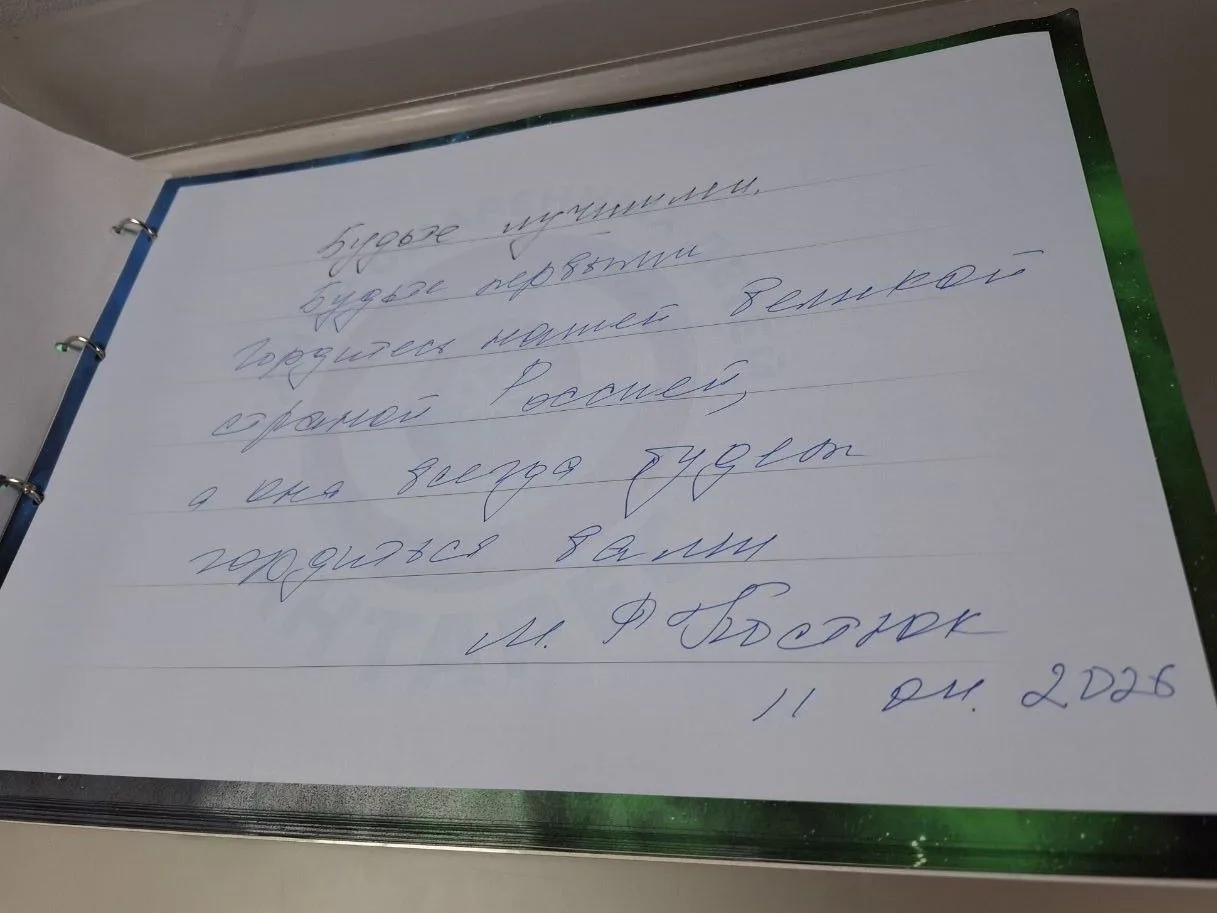 Будьте лучшими,
Будьте первыми
Гордитесь нашей великой
страной Россией,
а она всегда будет
гордиться вами
М. Ф Костюк
11 2026